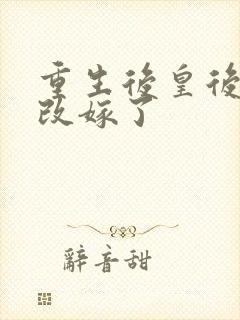 重生後皇後
改嫁了
辭音甜